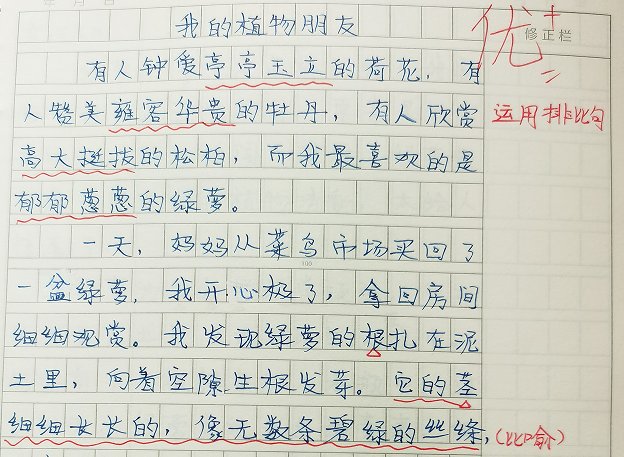 我的植物朋友
优+
修正栏
有人钟爱亭亭玉立的荷花，有
人赞美雍容华贵的牡丹，有人欣赏
运用排比句
高大挺拔的松柏，而我最喜欢的是
郁郁葱葱的绿萝。
一天，妈妈从菜鸟市场买回了
100
一盆绿萝，我开心极了，拿回房间
细细观赏。我发现绿萝的根扎在泥
土里，向着空隙生根发芽。它的茎
细细长长的，像无数条碧绿的丝绦，
(比喻)